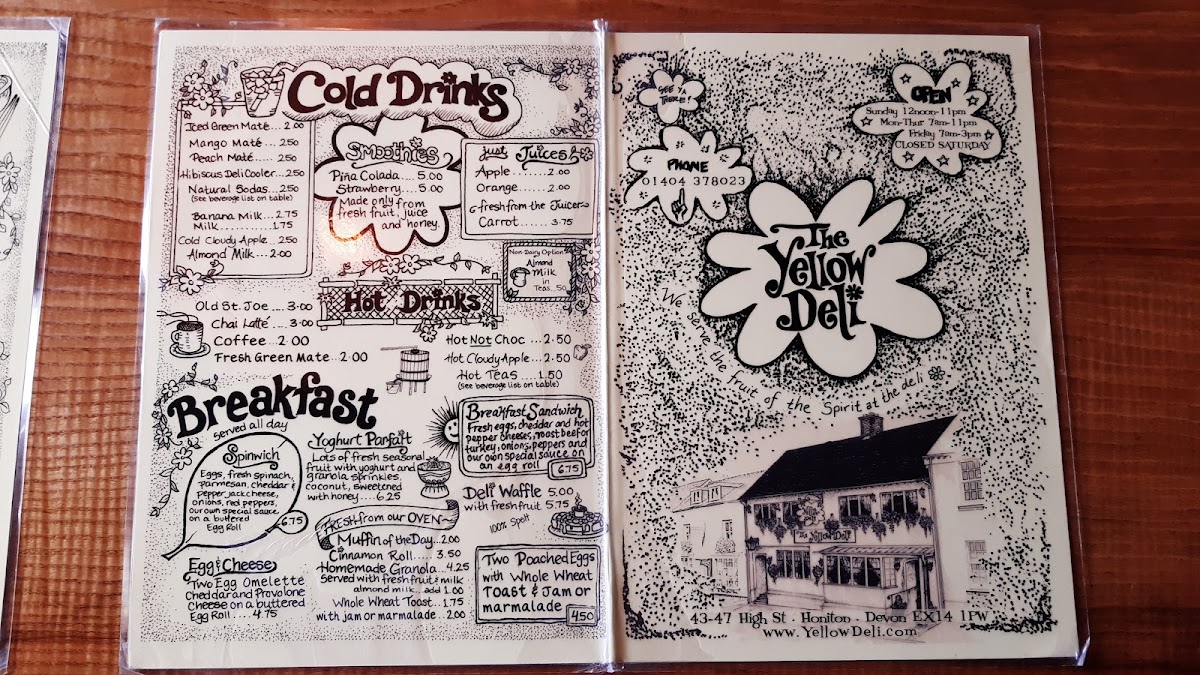 Cold Drinks
Iced Green Maté... 2.00
Mango Maté.... 2.50
Peach Maté.... 2.50
Hibiscus Deli Cooler...2.50
Natural Sodas...2.50
(See beverage list on table)
Banana Milk... 2.75
Milk............ 1.75
Cold Cloudy Apple...2.50
Almond Milk...2.00
Smoothies
Piña Colada.... 5.00
Strawberry.... 5.00
Made only from
fresh fruit, juice
and honey.
just Juices
Apple....... 2.00
Orange....... 2.00
fresh from the Juicer
Carrot....... 3.75
Non Dairy Option
Almond
Milk
in
Teas...50
Hot Drinks
Old St. Joe .... 3.00
Chai Latté .... 3.00
Coffee .. 2.00
Fresh Green Mate..2.00
Hot Not Choc ... 2.50
Hot Cloudy Apple... 2.50
Hot Teas .... 1.50
(See beverage list on table)
Breakfast
served all day
Spinwich
Eggs, fresh spinach,
parmesan, cheddar &
pepper jack cheese,
onions, red peppers,
our own special sauce
on a buttered
Egg Roll
6.75
Egg & Cheese
Two Egg Omelette
Cheddar and Provolone
Cheese on a buttered
Egg Roll .... 4.75
Yoghurt Parfait
Lots of fresh seasonal
fruit with yoghurt and
granola sprinkles,
coconut, sweetened
with honey .... 6.25
FRESH from our OVEN
Muffin of the Day...2.00
Cinnamon Roll..... 3.50
Homemade Granola...4.25
Served with fresh fruit & milk
almond milk... add 1.00
Whole Wheat Toast... 1.75
with jam or marmalade .. 2.00
Breakfast Sandwich
Fresh eggs, cheddar and hot
pepper cheeses, roast beef or
turkey, onions, peppers and
our own special sauce on
an egg roll
6.75
Deli Waffle 5.00
with fresh fruit 5.75
100% Spelt
Two Poached Eggs
with Whole Wheat
Toast & Jam or
marmalade
4.50
SEE YA
THERE!
OPEN
Sunday 12noon-11pm
Mon-Thur 7am-11pm
Friday 7am-3pm
CLOSED SATURDAY
PHONE
01404 378023
The
Yellow
Deli
We serve the fruit of the Spirit at the deli
The Yellow Deli
43-47 High St · Honiton · Devon EX14 1PW
www.YellowDeli.com